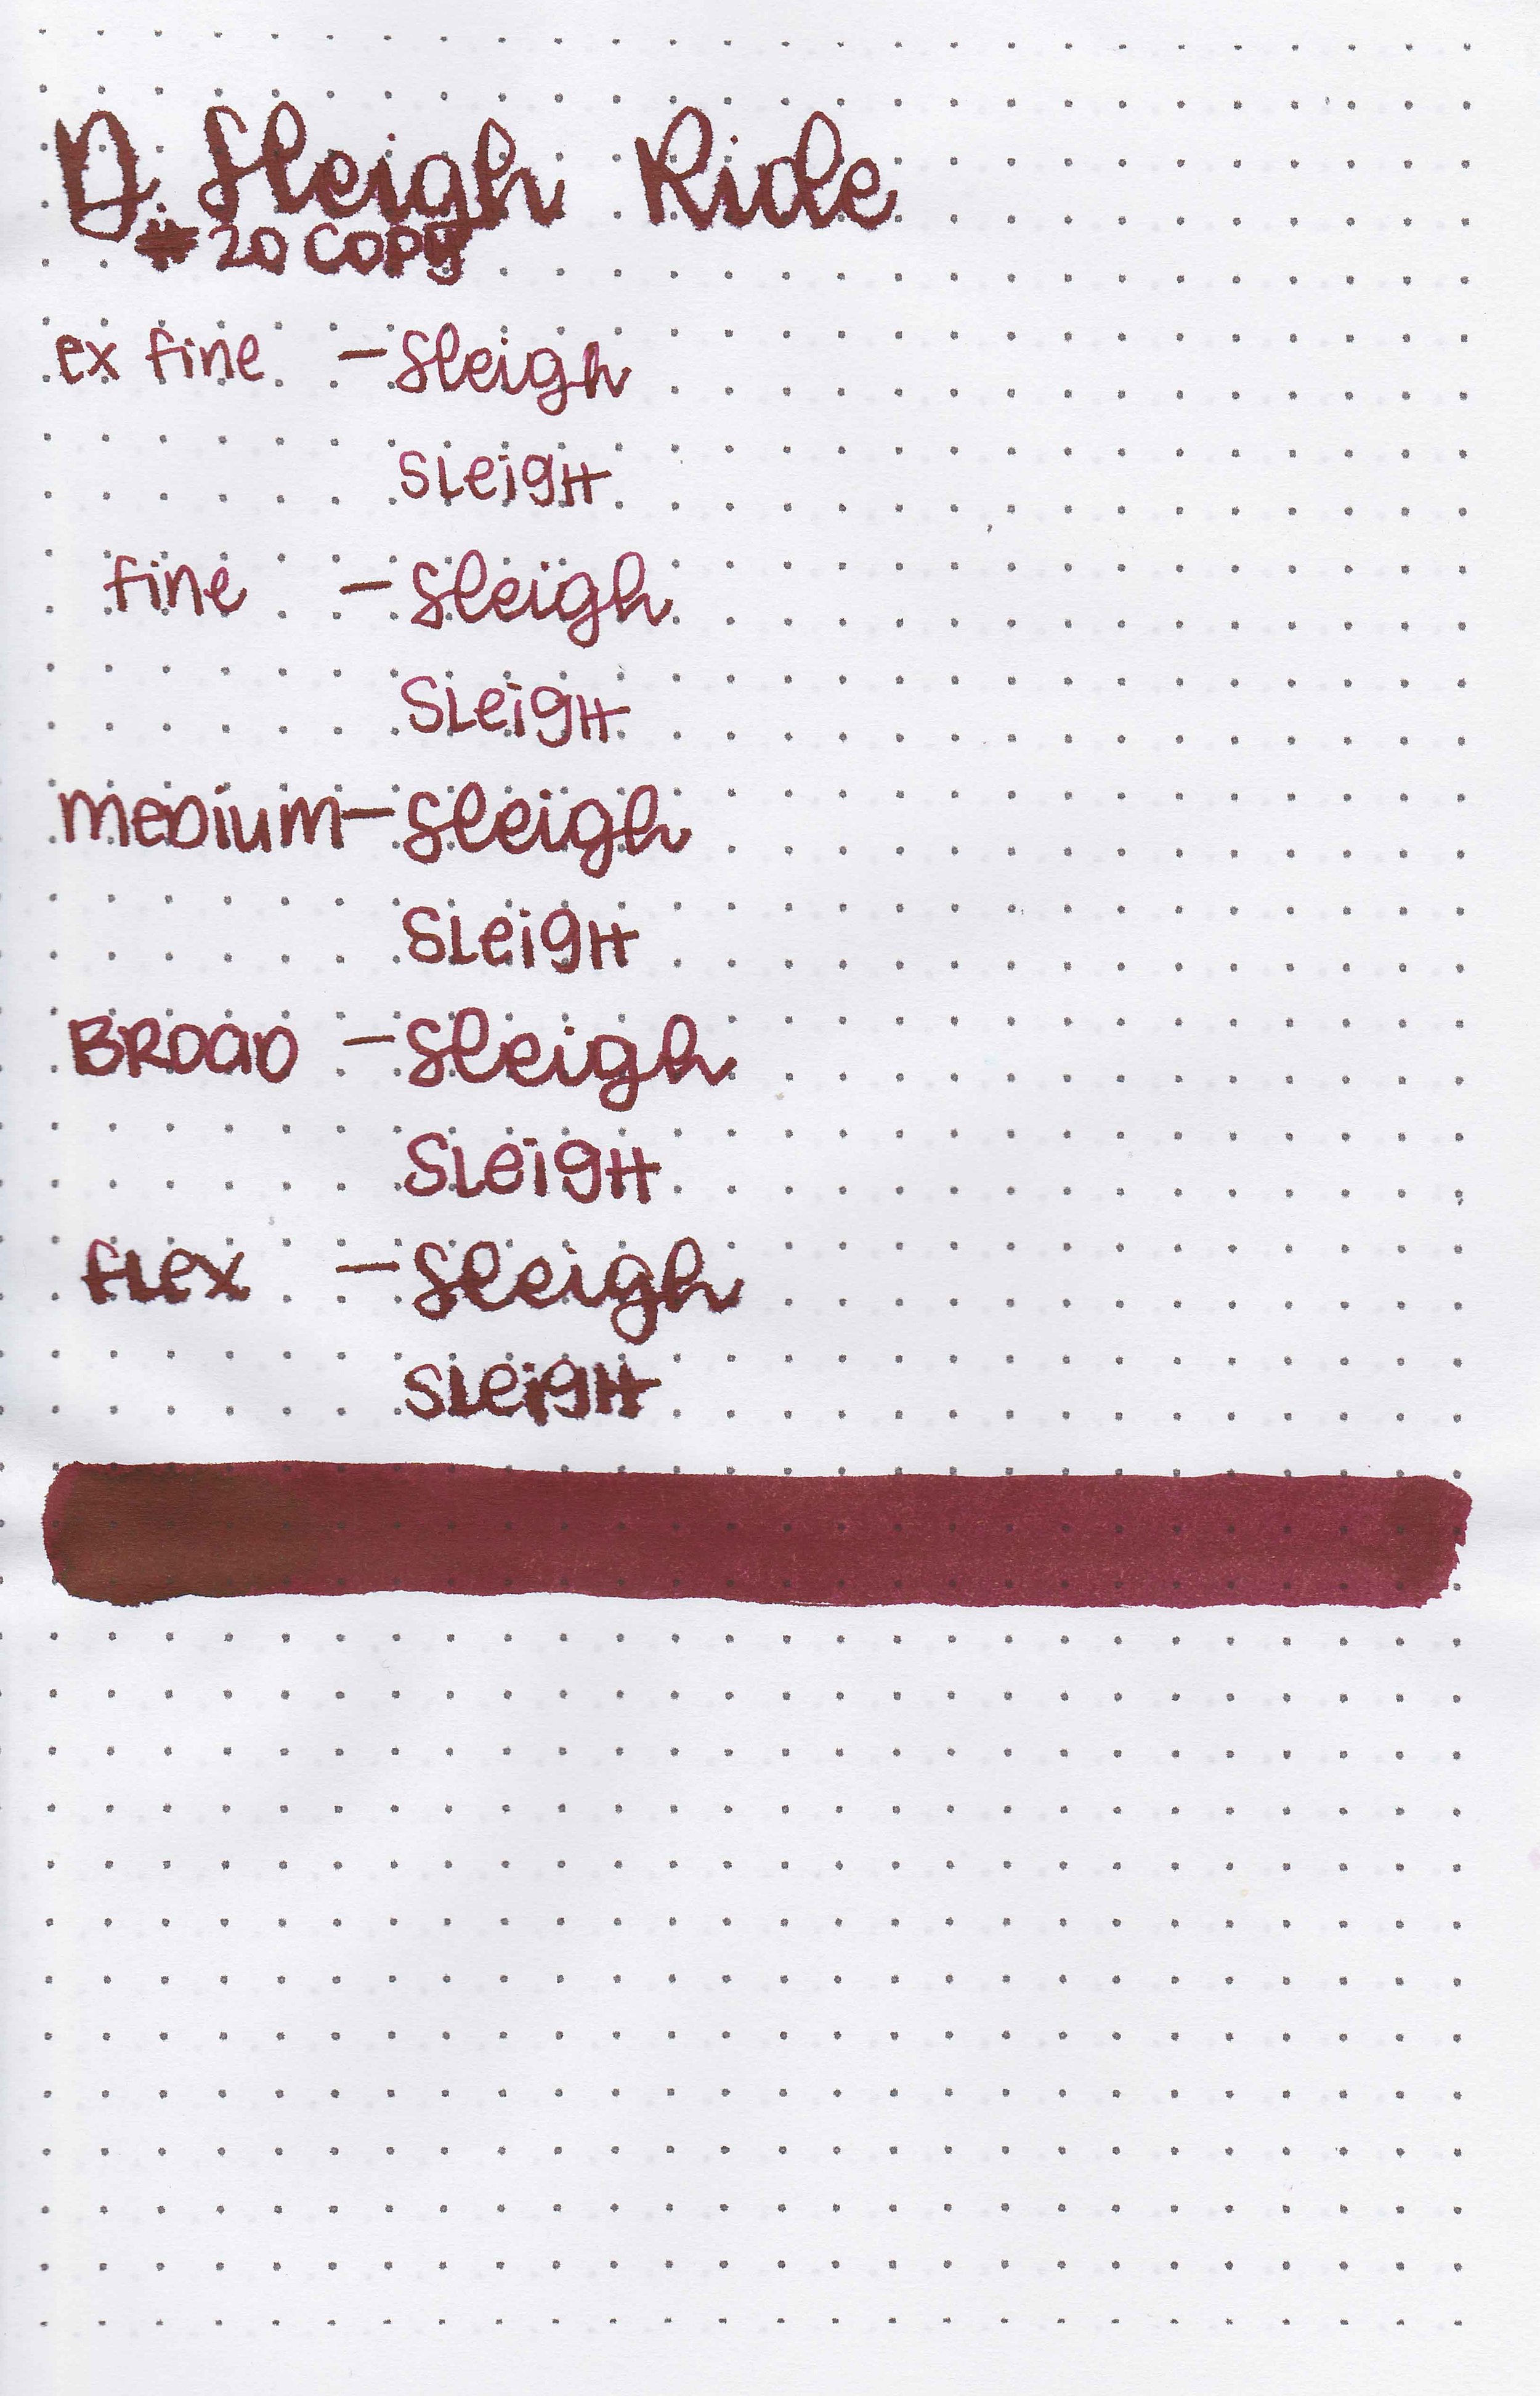 D. Sleigh Ride
#20 COPY
ex fine - Sleigh
SLeigH
fine - Sleigh
SLeigH
MeDium - Sleigh
SLeigH
BROaD - Sleigh
SLeigH
fLex - Sleigh
SLeigH